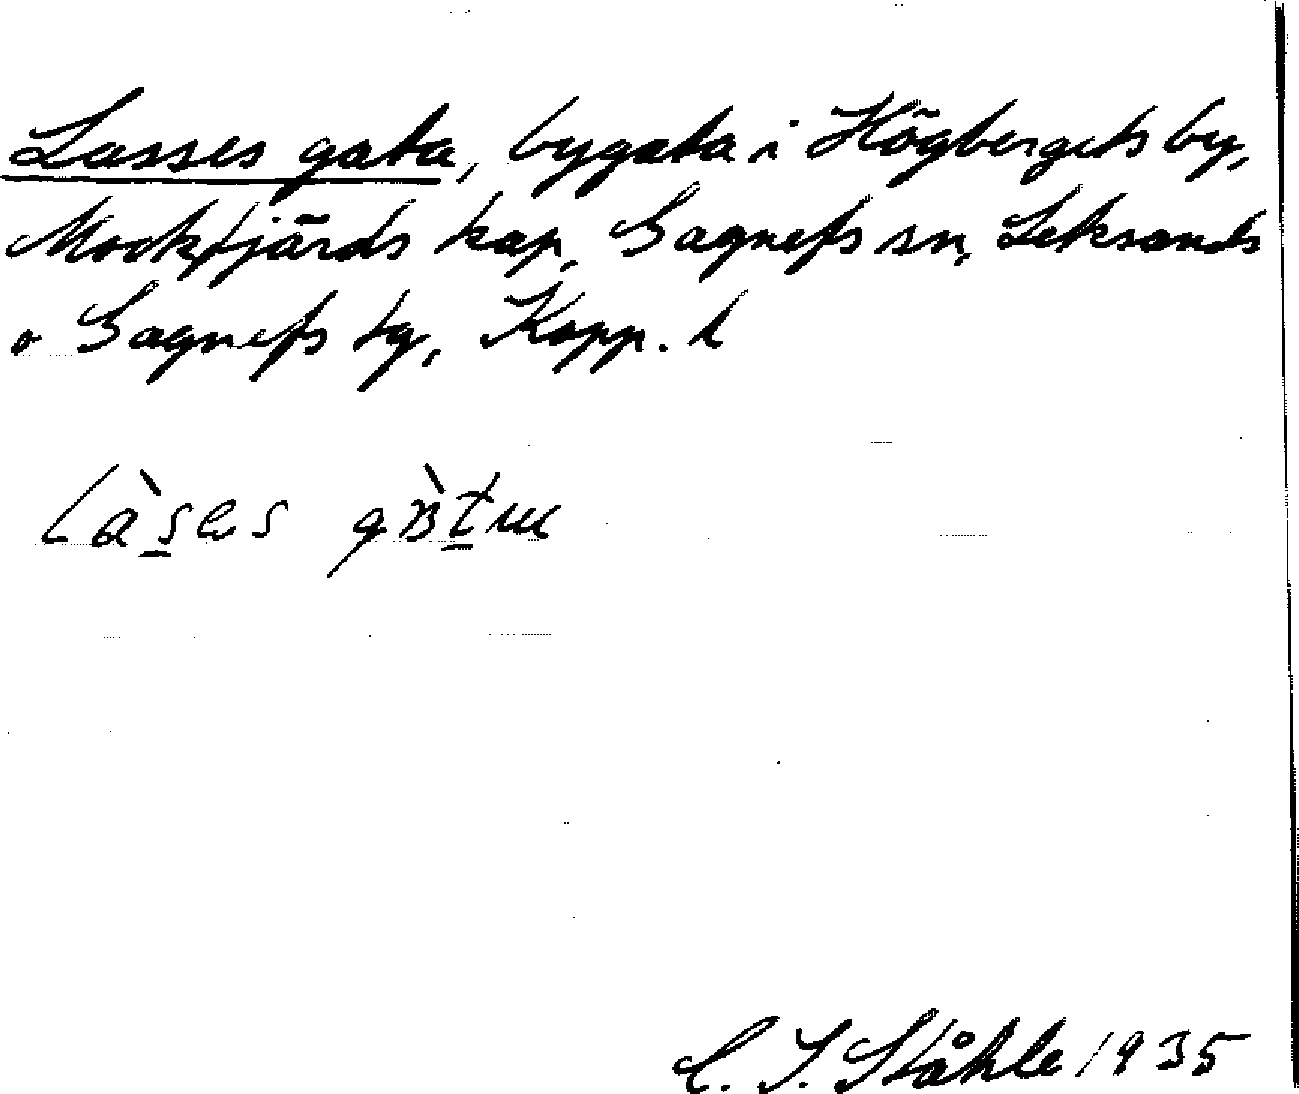 Lasses gata, bygata i Högbergets by,
Mockfjärds kap, Gagnefs sn, Leksands
o Gagnefs tg, Kopp. l
C. I. Ståhle 1935